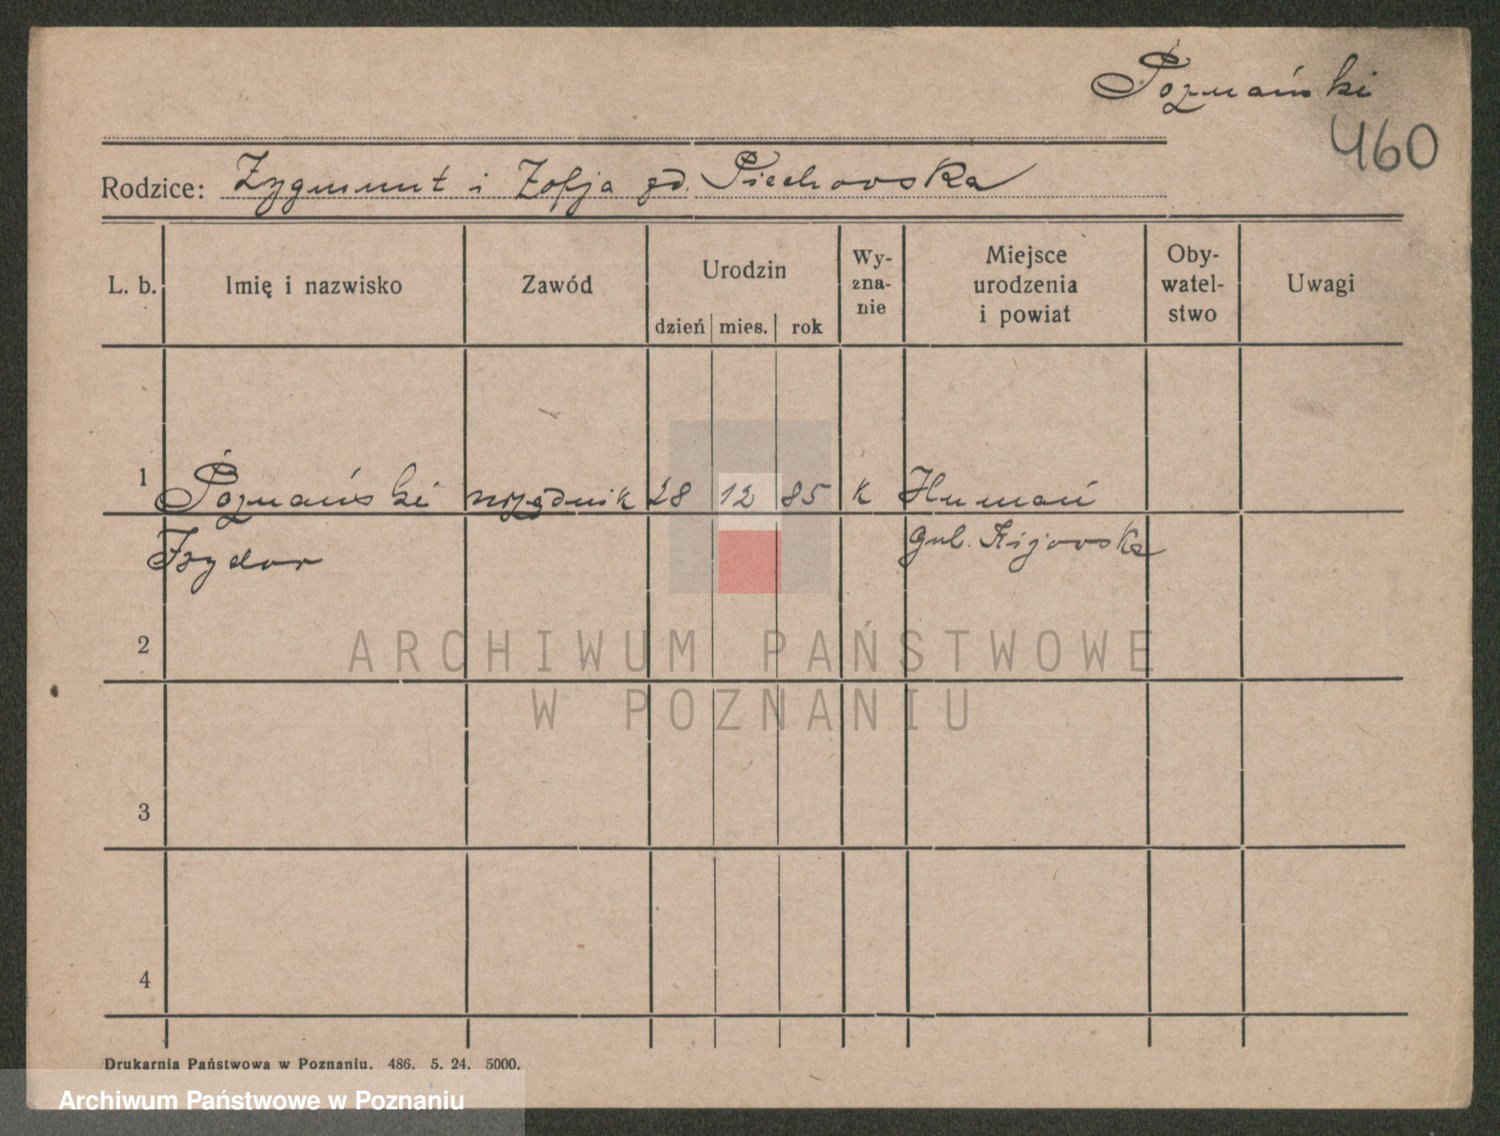 Poznański
460
Rodzice: Zygmunt i Zofja zd. Piechowska
L. b. Imię i nazwisko Zawód Urodzin Wy- Miejsce Oby- Uwagi
zna- urodzenia watel-
nie i powiat stwo
dzień mies. rok
1 Poznański urzędnik 28 12 85 k Humań
Izydor gub. Kijowska
2
3
4
ARCHIWUM PAŃSTWOWE
W POZNANIU
Drukarnia Państwowa w Poznaniu. 486. 5. 24. 5000.
Archiwum Państwowe w Poznaniu